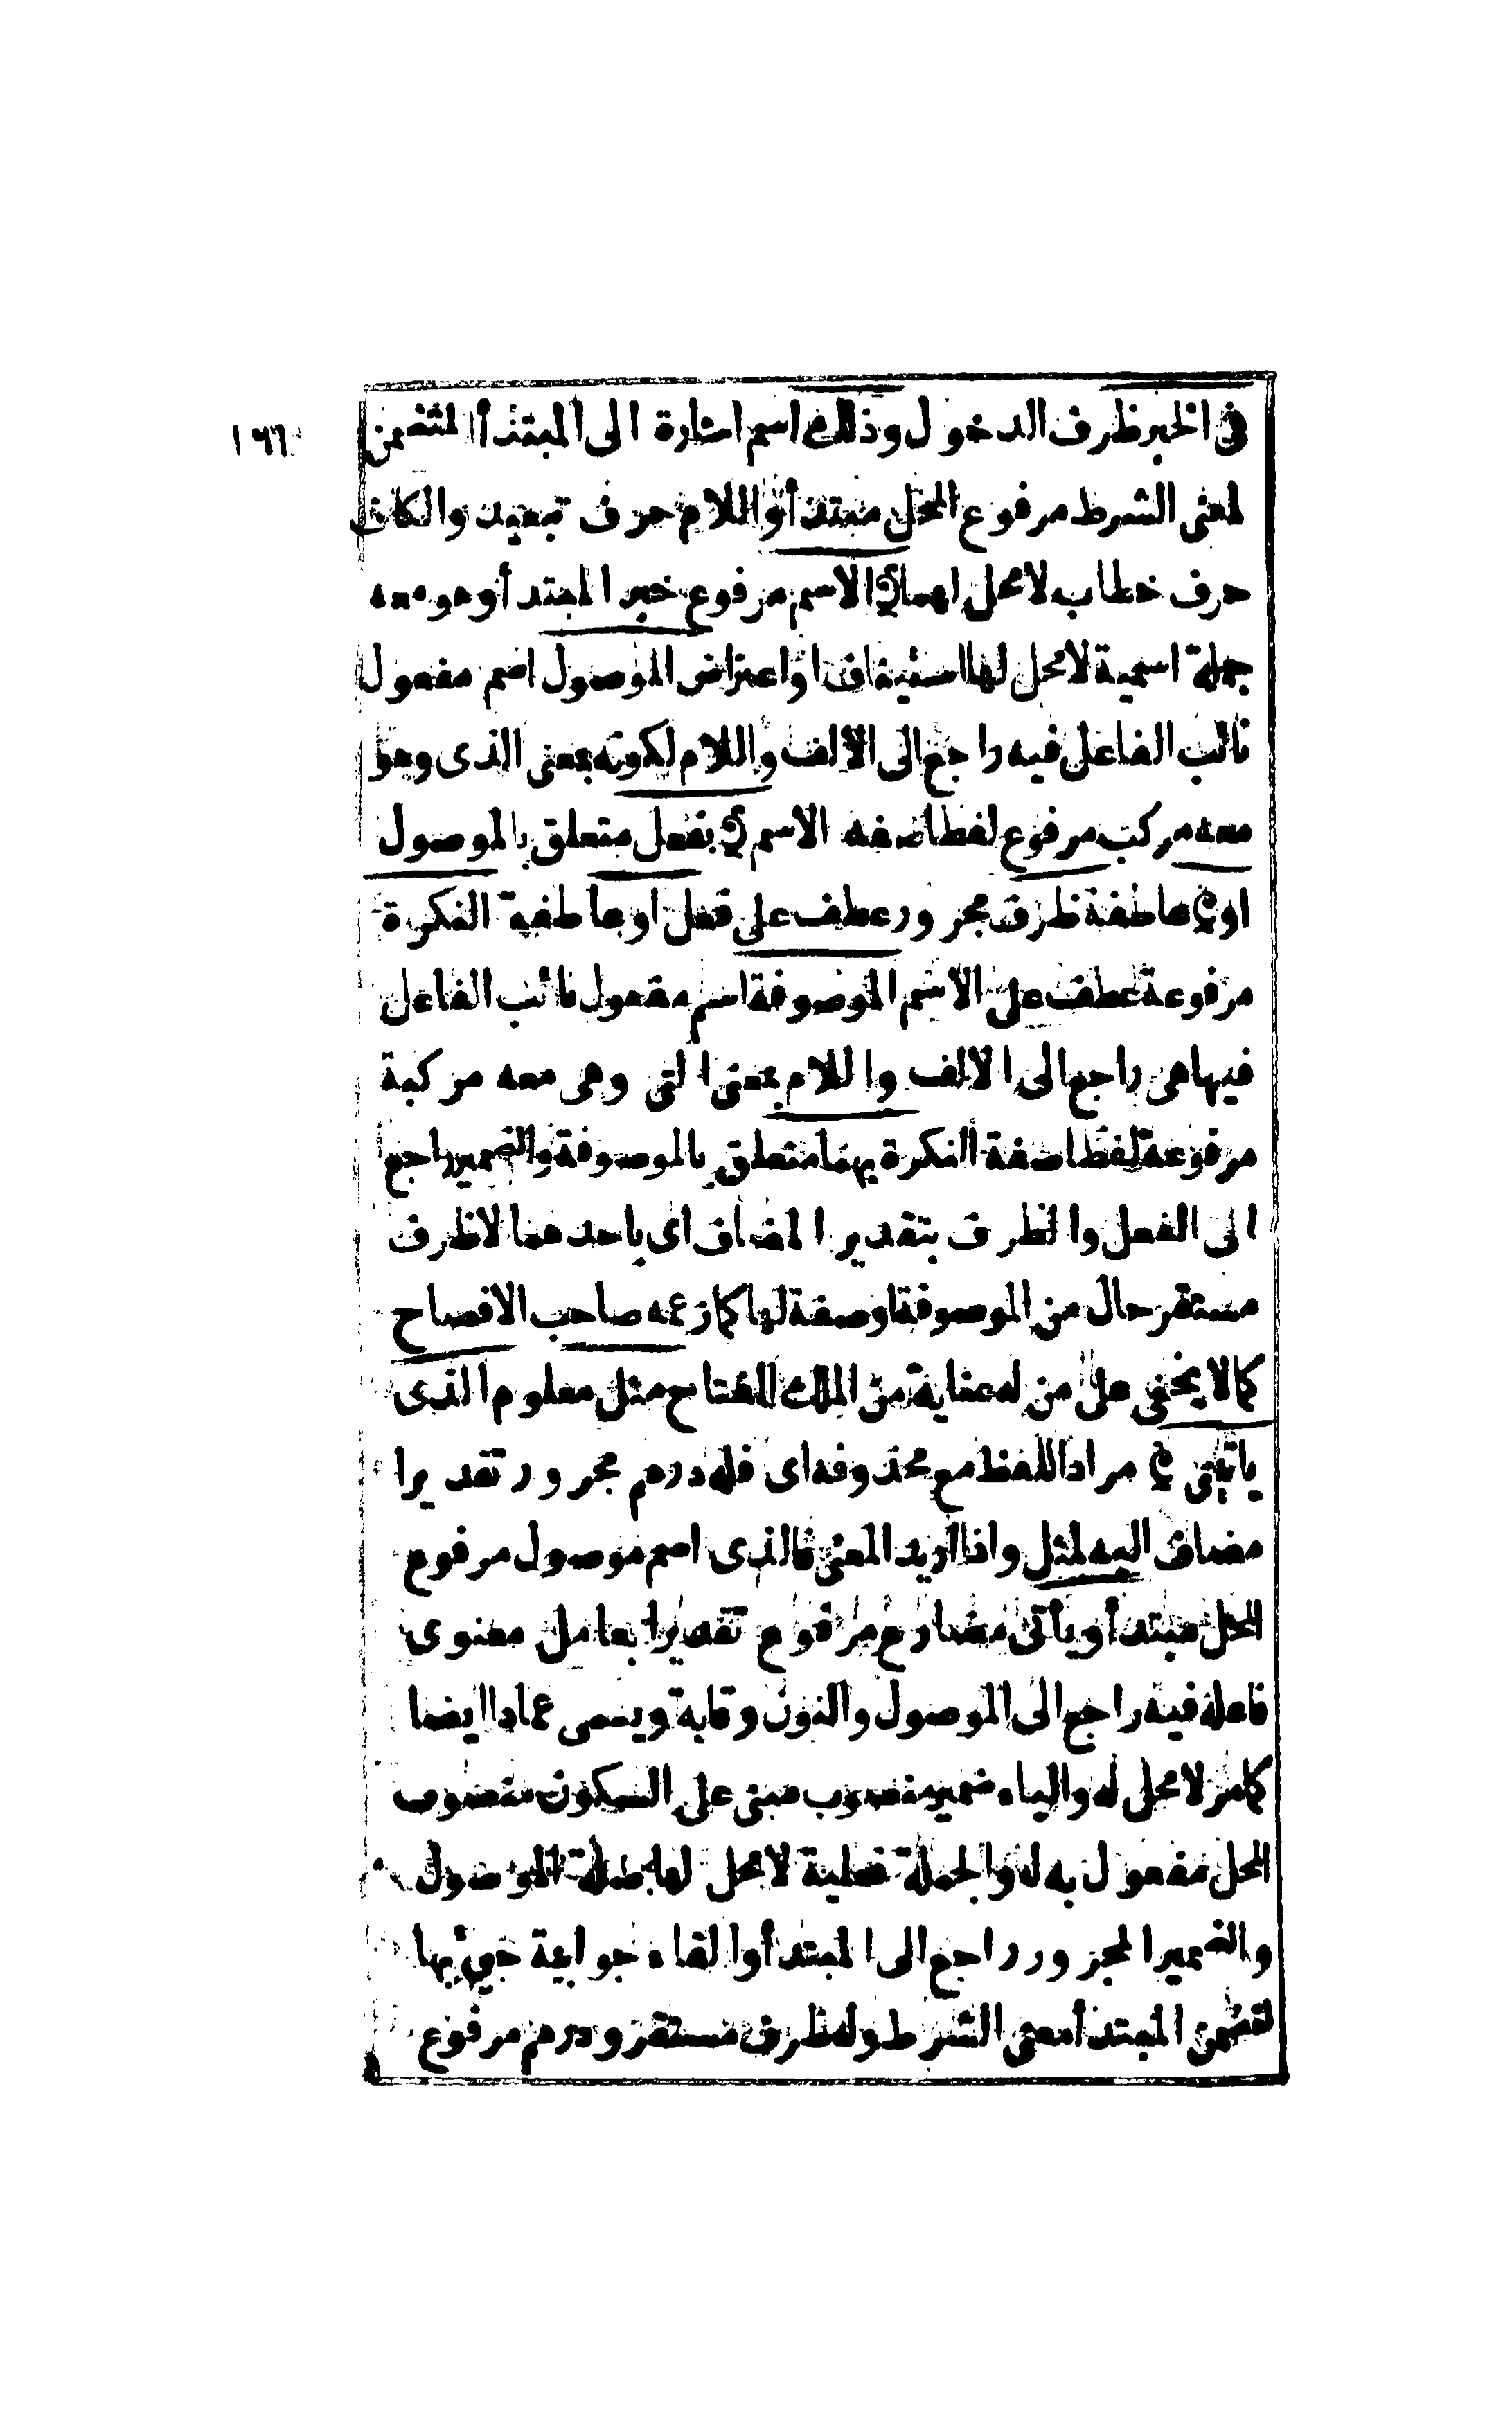 ١٦٦
فى الخبر ظرف الدخول وذلك اسم اشارة الى المبتدأ المتضمن
لمعنى الشرط مرفوع المحل مبتدأ واللام حرف تبعيد والكاف
حرف خطاب لا محل لهما الاسم مرفوع خبر المبتدأ وهو معه
جملة اسمية لا محل لها استيناف او اعتراض الموصول اسم مفعول
نائب الفاعل فيه راجع الى الالف واللام لكونه بمعنى الذى وهو
معه مركب مرفوع لفظا صفة الاسم بفعل متعلق بالموصول
او عاطفة ظرف مجرور عطف على فعل او عاطفة النكرة
مرفوعة عطف على الاسم الموصوفة اسم مفعول نائب الفاعل
فيها هى راجع الى الالف واللام بمعنى التى وهى معه مركبة
مرفوعة لفظا صفة النكرة بهما متعلق بالموصوفة والضمير راجع
الى الفعل والظرف بتقدير المضاف اى باحدهما لا ظرف
مستقر حال من الموصوفة او صفة لها كما زعمه صاحب الافصاح
كما لا يخفى على من له عناية من الملك الفتاح مثل معلوم الذى
ياتينى مراد اللفظ مع محذوفه اى فله درهم مجرور تقديرا
مضاف اليه لمثل واذا اريد المعنى فالذى اسم موصول مرفوع
المحل مبتدأ ويأتى مضارع مرفوع تقديرا بعامل معنوى
فاعله فيه راجع الى الموصول والنون وقاية ويسمى عمادا ايضا
كما مر لا محل له والياء ضمير منصوب مبنى على السكون منصوب
المحل مفعول به له والجملة فعلية لا محل لها صلة الموصول
والضمير المجرور راجع الى المبتدأ والفاء جوابية جيئ بها
لتضمن المبتدأ معنى الشرط وله ظرف مستقر ودرهم مرفوع